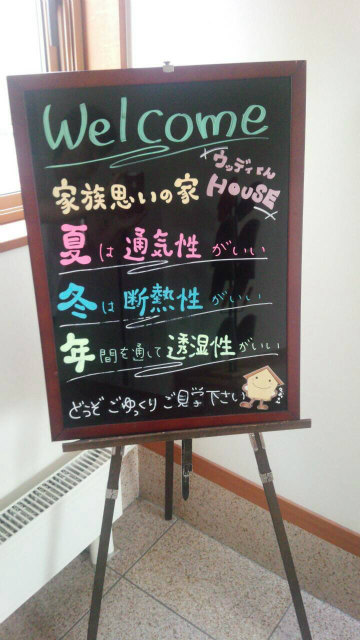 Welcome
ウッディくん
家族思いの家 HOUSE
夏は通気性がいい
冬は断熱性がいい
年間を通して透湿性がいい
どうぞごゆっくりご見学下さい